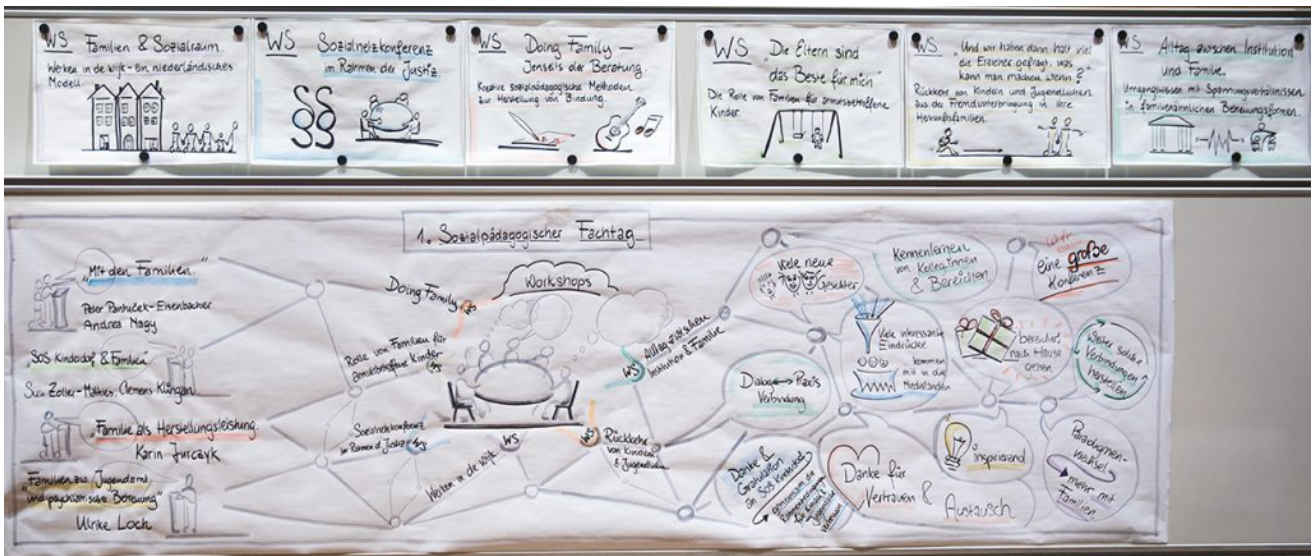 WS Familien & Sozialraum.
Werken in de wijk - ein niederländisches
Modell.
WS Sozialnetzkonferenz
im Rahmen der Justiz.
WS Doing Family –
Jenseits der Beratung.
Kreative sozialpädagogische Methoden
zur Herstellung von Bindung.
WS „Die Eltern sind
das Beste für mich“
Die Rolle von Familien für armutsbetroffene
Kinder.
WS „Und wir haben dann halt viel
die Erzieher gefragt, was
kann man machen wenn?“
Rückkehr von Kindern und Jugendlichen
aus der Fremdunterbringung in ihre
Herkunftsfamilien.
WS Alltag zwischen Institution
und Familie.
Umgangsweisen mit Spannungsverhältnissen
in familienähnlichen Betreuungsformen.
1. Sozialpädagogischer Fachtag
„Mit den Familien.“
Peter Pantuček-Eisenbacher
Andrea Nagy
„SOS Kinderdorf & Familien“
Zoller-Mathies, Clemens Klingan
„Familie als Herstellungsleistung.
Karin Jurczyk
„Familien zw. Jugendamt
und psychiatrische Betreuung“
Ulrike Loch
Workshops
Doing Family WS
Rolle von Familien für
armutsbetroffene Kinder WS
Sozialnetzkonferenz
im Rahmen d. Justiz WS
Werken in de wijk. WS
WS Rückkehr
von Kindern
& Jugendlichen
WS Alltag zwischen
Institution & Familie
Viele neue
Gesichter
Kennenlernen
von KollegInnen
& Bereichen
eine große
Konferenz
Viele interessante
Eindrücke
kommen
mit in die
Niederlande
bereichert
nach Hause
gehen
Weiter solche
Verbindungen
herstellen
Dialog Praxis
Verbindung
Danke &
Gratulation
an SOS Kinderdorf
gemeinsam die
Rahmenbedingungen
für Kinder &
Jugendliche
Danke für
Vertrauen &
Austausch
inspirierend
Paradigmen-
wechsel
mehr mit
Familien